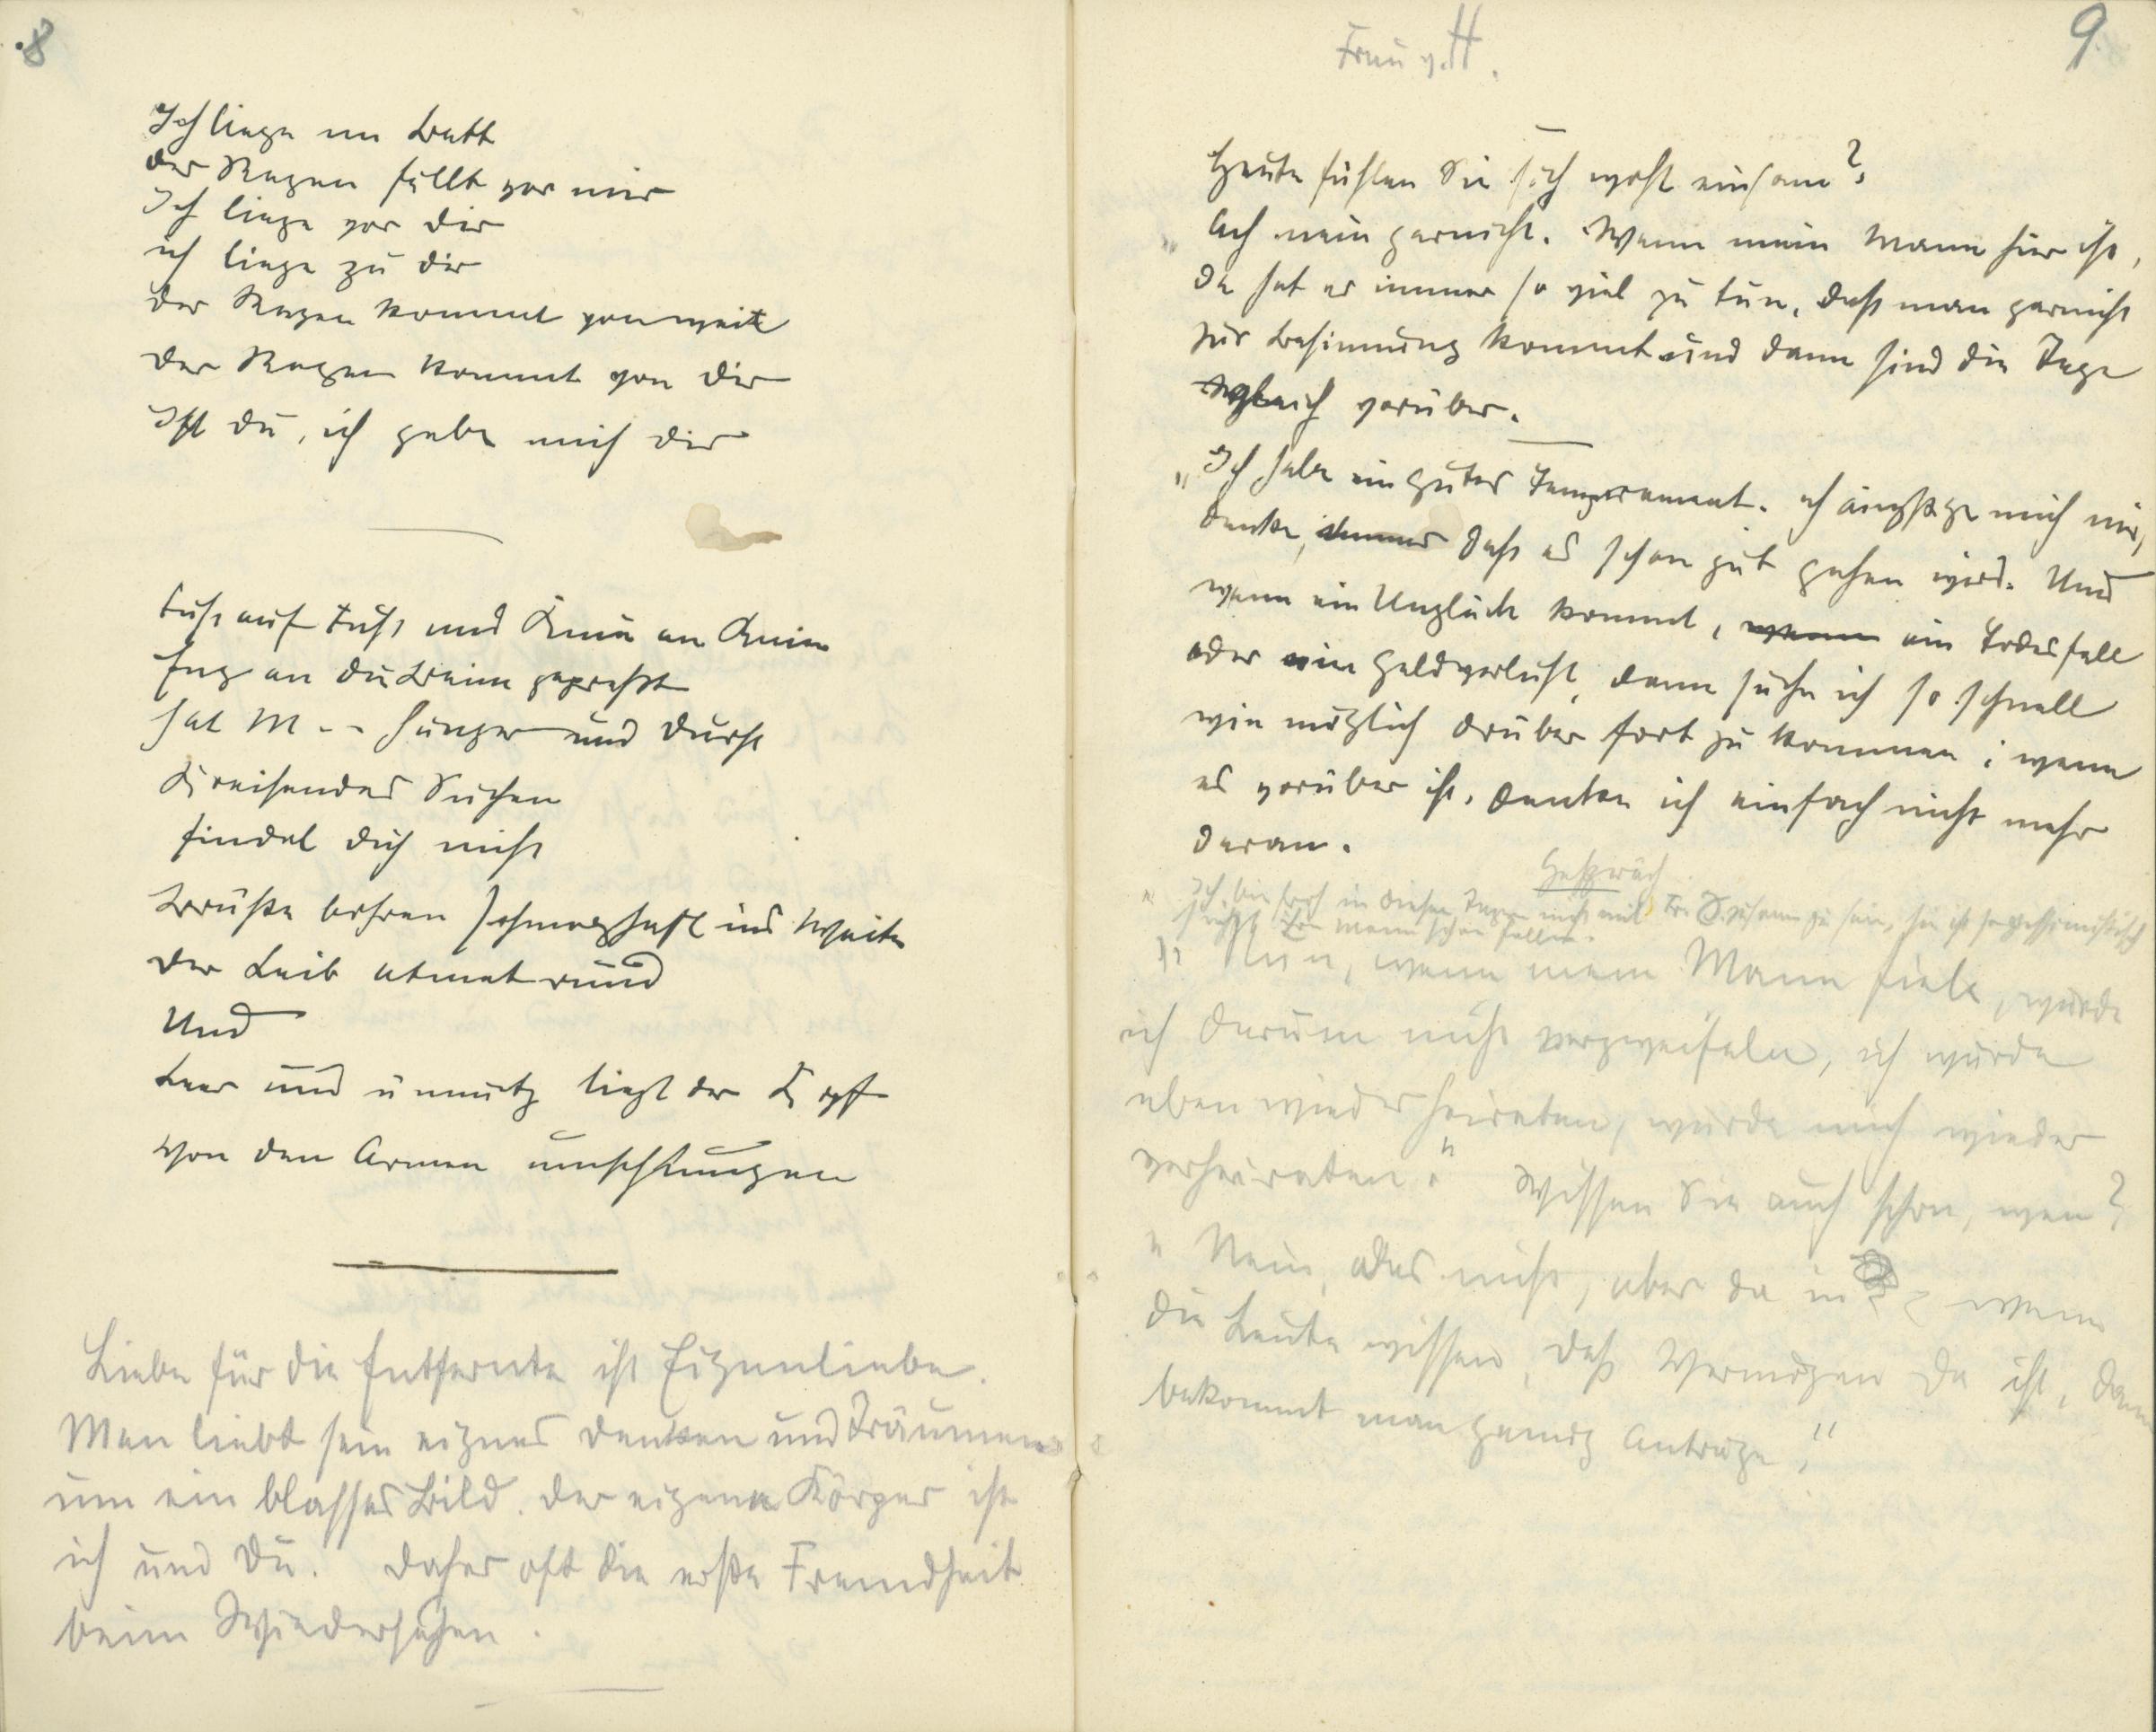 8.
Ich liege im Bett
der Regen fällt vor mir
Ich liege vor dir
ich liege zu dir
der Regen kommt von weit
der Regen kommt von dir
Ist du, ich gebe mich dir
Fuß auf Fuß und Knie an Knie
Eng an die Beine gepreßt
hat M-- Hunger und Durst
Kreisendes Suchen
findet dich nicht
Brüste bohren schmerzhaft ins Weite
Der Leib atmet rund
Und
Leer und unnütz liegt der Kopf
von den Armen umschlungen
Liebe für die Entfernte ist Eigenliebe.
Man liebt sein eignes Denken und Träumen
um ein blasses Bild. Der eigene Körper ist
ich und Du. Daher oft die erste Fremdheit
beim Wiedersehen.
9.
Frau v. H.
Heute fühlen Sie sich wohl einsam?
"Ach nein garnicht. Wenn mein Mann hier ist,
da hat er immer so viel zu tun, daß man garnicht
zur Besinnung kommt und dann sind die Tage
gleich vorüber.
"Ich habe ein gutes Temperament. Ich ängstige mich nie,
denke, immer daß es schon gut gehen wird. Und
wenn ein Unglück kommt, wenn ein Todesfall
oder ein Geldverlust, dann suche ich so schnell
wie möglich drüber fort zu kommen; wenn
es vorüber ist, denke ich einfach nicht mehr
daran.
Gespräch
"Ich bin froh in diesen Tagen nicht mit Fr. S. zusammen zu sein, sie ist so pessimistisch
sieht ihren Mann schon fallen.
"Nun, wenn mein Mann fiele, würde
ich darum nicht verzweifeln, ich würde
eben wieder heiraten, würde mich wieder
verheiraten." Wissen Sie auch schon, wen?
"Nein, das nicht, aber da in wenn
die Leute wissen, daß Vermögen da ist, dann
bekommt man genug Anträge."